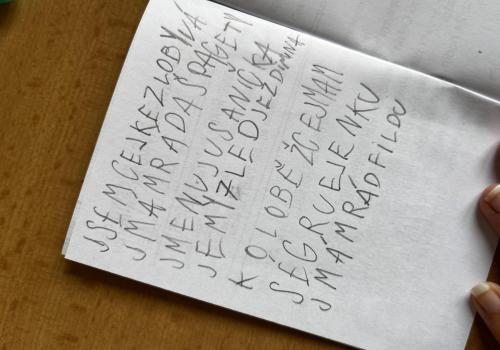 JSEMCEJKEZLOBYVÁ
JMÁMRÁDAŠPAGETY
JMENUJUSANIČKA
JEMYZLEDJEZDIMNA
KÓLOBĚŽCEJMAM
SÉGRUEJENKU
JMÁMRÁDFILOU